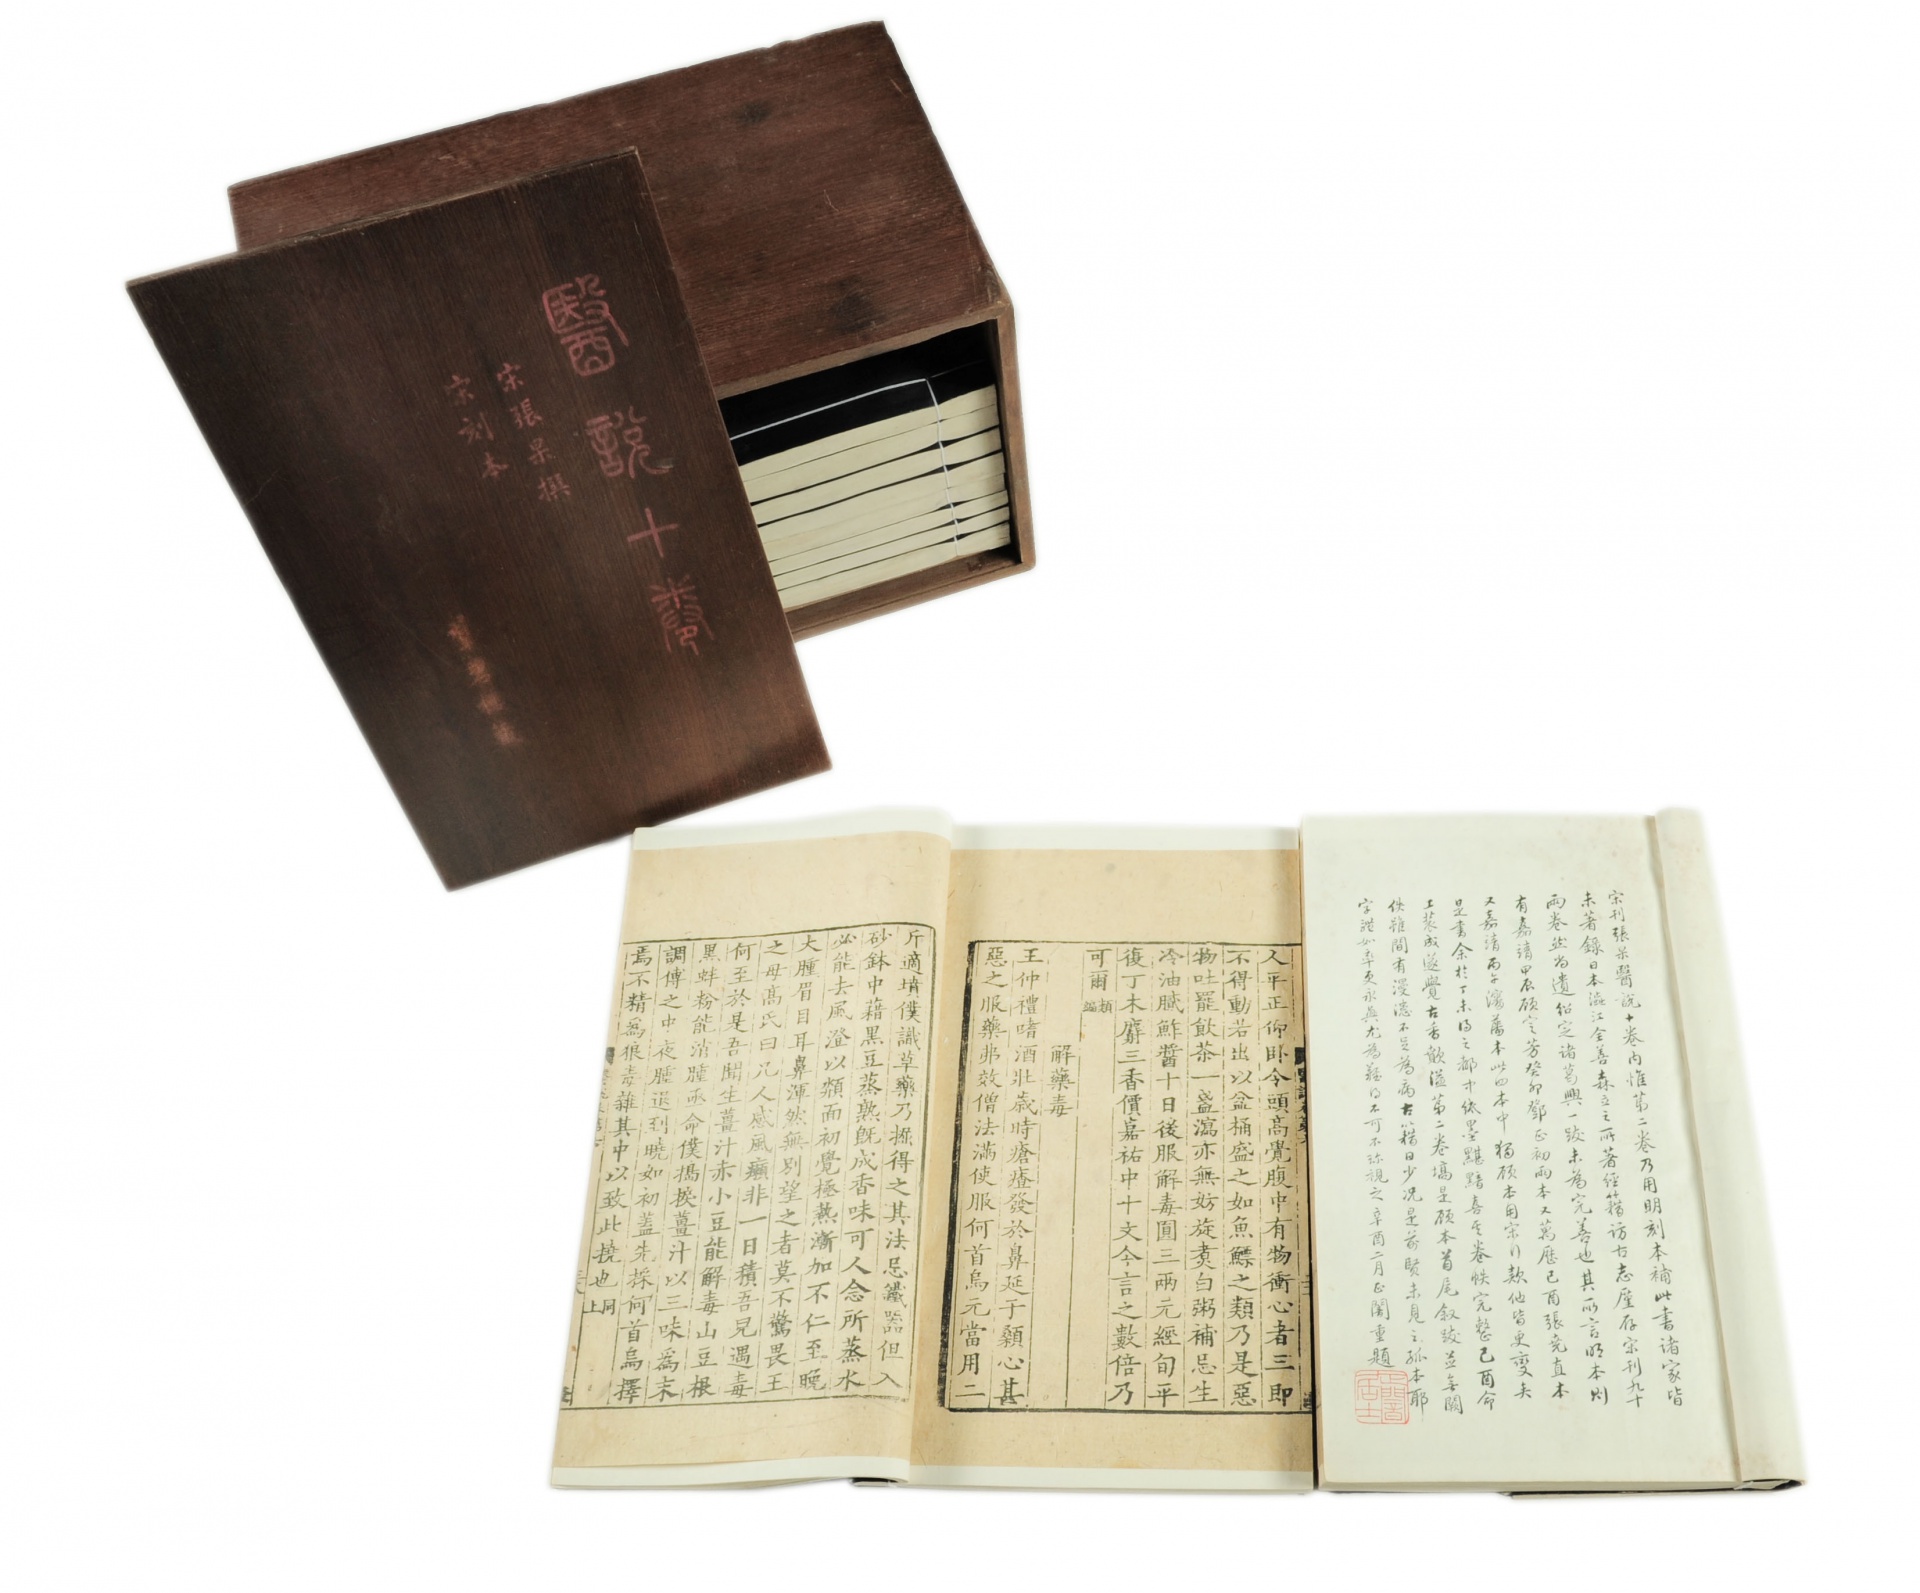 醫說十卷
宋張杲撰
宋刻本
人平正仰卧令頭高覺腹中有物衝心者三即
不得動若出以盆桶盛之如魚鰾之類乃是惡
物吐罷飲茶一盞瀉亦無妨旋煮白粥補忌生
冷油膩鮓醬十日後服解毒圓三兩元經旬平
復丁木麝三香價嘉祐中十文今言之數倍乃
可爾類編
解藥毒
王仲禮嗜酒壯歲時瘡瘥發於鼻延于顙心甚
惡之服藥弗效僧法滿使服何首烏元當用二
斤適墳僕識草藥乃掘得之其法忌鐵器但入
砂鉢中藉黑豆蒸熟既成香味可人念所蒸水
必能去風澄以頮面初覺極熱漸加不仁至晚
大腫眉目耳鼻渾然無別望之者莫不驚畏王
之母高氏曰凡人感風癩非一日積吾兒遇毒
何至於是吾聞生薑汁赤小豆能解毒山豆根
黑蚌粉能消腫亟命僕搗捩薑汁以三味為末
調傅之中夜腫退到曉如初蓋先採何首烏擇
焉不精為狼毒雜其中以致此撓也同上
宋刊張杲醫說十卷內惟第二卷乃用明刻本補此書諸家皆
未著錄日本澀江全善森立之所著經籍訪古志廑存宋刊九十
兩卷然尚遺紹定諸葛興一跋未為完善也其所言明本則
有嘉靖甲辰顧定芳癸卯鄧正初兩本又萬曆己酉張堯直本
又嘉靖丙午瀋藩本此四本中獨顧本用宋行款他皆更變矣
是書余於丁未得之都市紙墨黮黯喜其卷帙完整己酉命
工裝成遂覺古香馣溢第二卷填是顧本首尾叙跋並無闕
佚雖間有漫漶不足為病古籍日少況是前賢未見之孤本耶
字澁如辛更永興尤為難得不可不珍視之辛酉二月正闇重題